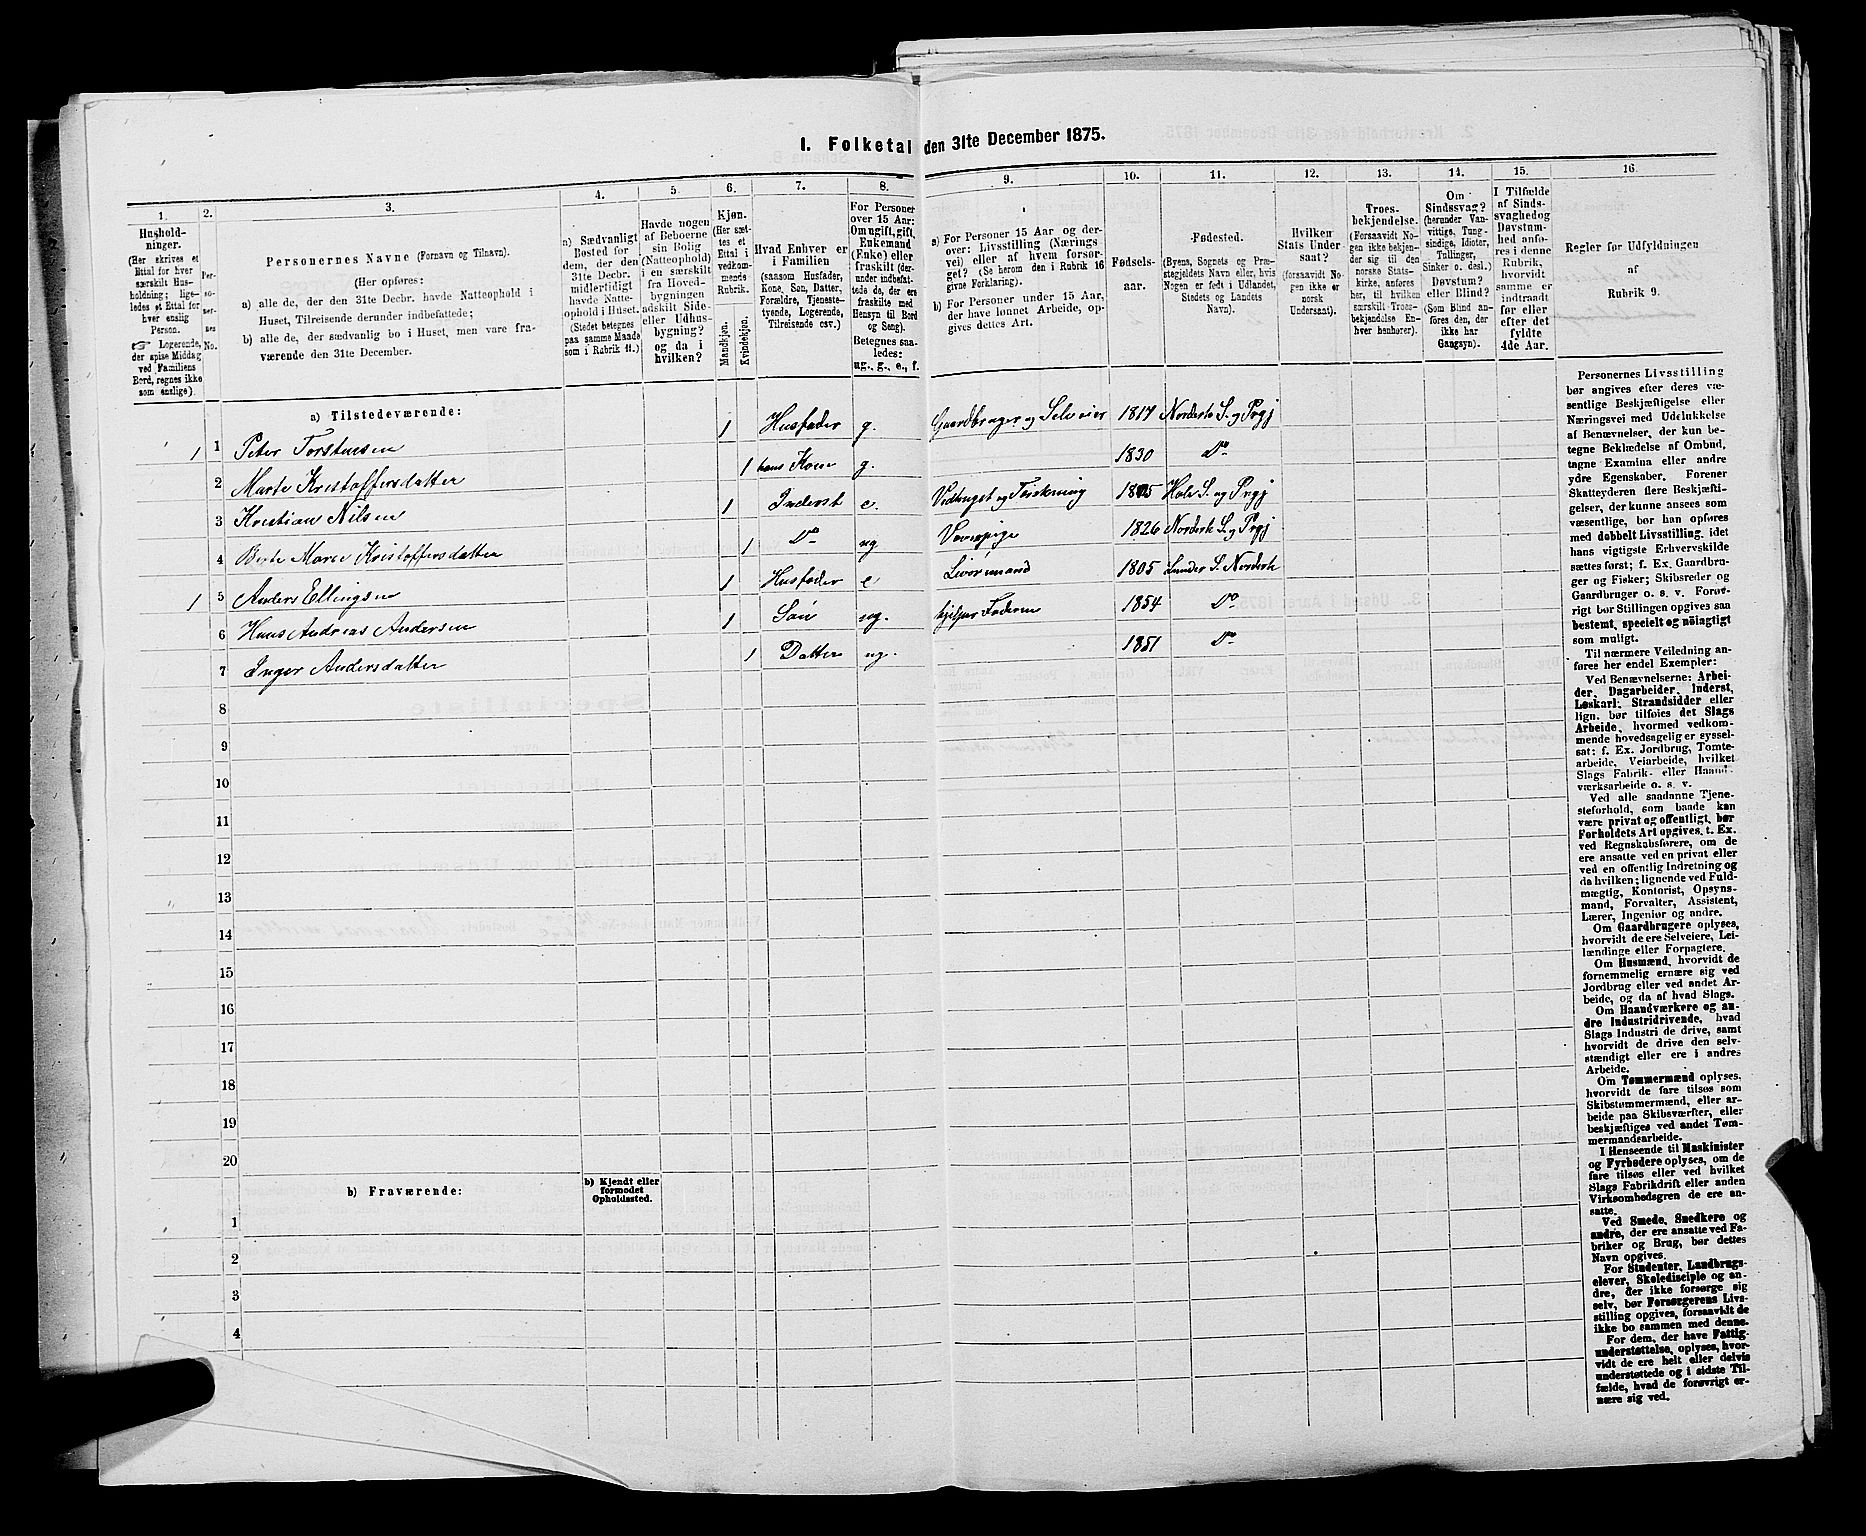 I. Folketal den 31te December 1875.
1. 2. 3. 4. 5. 6. 7. 8. 9. 10. 11. 12. 13. 14. 15. 16.
Hushold-
ninger.
(Her skrives et
Ettal for hver
særskilt Hus-
holdning; lige-
ledes et Ettal for
hver enslig
Person.
☞ Logerende,
der spise Middag
ved Familiens
Bord, regnes ikke
som enslige).
Per-
so-
ner-
nes
No.
Personernes Navne (Fornavn og Tilnavn).
(Her opføres:
a) alle de, der den 31te Decbr. havde Natteophold i
Huset, Tilreisende derunder indbefattede;
b) alle de, der sædvanlig bo i Huset, men vare fra-
værende den 31te December.
a) Sædvanligt
Bosted for
dem, der den
31te Decbr.
midlertidigt
havde Natte-
ophold i Huset.
(Stedet betegnes
paa samme Maade
som i Rubrik 11.)
Havde nogen
af Beboerne
sin Bolig
(Natteophold)
i en særskilt
fra Hoved-
bygningen
adskilt Side-
eller Udhus-
bygning?
og da i
hvilken?
Kjøn.
(Her sæt-
tes et
Ettal i
vedkom-
mende
Rubrik.
Mandkjøn.
Kvindekjøn.
Hvad Enhver er
i Familien
(saasom Husfader,
Kone, Søn, Datter,
Forældre, Tjeneste-
tyende, Logerende,
Tilreisende osv.)
For Personer
over 15 Aar:
Om ugift, gift,
Enkemand
(Enke) eller
fraskilt (der-
under indbefat-
tede, der ere
fraskilte med
Hensyn til Bord
og Seng).
Betegnes saa-
ledes:
ug., g., e., f.
a) For Personer 15 Aar og der-
over: Livsstilling (Nærings-
vei) eller af hvem forsør-
get? (Se herom den i Rubrik 16
givne Forklaring).
b) For Personer under 15 Aar,
der have lønnet Arbeide, op-
gives dettes Art.
Fødsels-
aar.
Fødested.
(Byens, Sognets og Præ-
stegjeldets Navn eller, hvis
Nogen er født i Udlandet,
Stedets og Landets
Navn).
Hvilken
Stats Under-
saat?
(forsaavidt No-
gen ikke er
norsk
Undersaat).
Troes-
bekjendelse.
(Forsaavidt No-
gen ikke bekjen-
der sig til den
norske Stats-
kirke, anføres
her, til hvilken
særskilt Troes-
bekjendelse En-
hver henhører).
Om
Sindssvag?
(herunder Van-
vittige, Tung-
sindige, Idioter,
Tullinger,
Sinker o. desl.)
Døvstum?
eller Blind?
(Som Blind an-
føres den, der
ikke har
Gangsyn).
I Tilfælde
af Sinds-
svaghed og
Døvstum-
hed anfø-
res i denne
Rubrik,
hvorvidt
samme er
indtraadt
før eller
efter det
fyldte
4de Aar.
Regler før Udfyldningen
af
Rubrik 9.
a) Tilstedeværende:
1 1 Peter Torstensen 1 Husfader g. Gaardbruger og Selveier 1817 Norderh. S. og Prgj
2 Marte Kristoffersdatter 1 hans Kone g. 1830 Do
3 Kristian Nilsen 1 Inderst e. Vedhugst og 1805 Hole S. og Prgj
4 Berte Marie Kristoffersdatter 1 Do ug 1826 Norderh S. og Prgj
1 5 Anders Ellingsen 1 Husfader e 1805 Lunder S. Norderh
6 Hans Andreas Andersen 1 Søn ug. hjelper Faderen 1854 Do
7 Inger Andersdatter 1 Datter ug. 1851 Do
8
9
10
11
12
13
14
15
16
17
18
19
20
b) Fraværende:
b) Kjendt eller
formodet
Opholdssted.
1
2
3
4
Personernes Livsstilling
bør angives efter deres væ-
sentlige Beskjæftigelse eller
Næringsvei med Udelukkelse
af Benævnelser, der kun be-
tegne Beklædelse af Ombud,
tagne Examina eller andre
ydre Egenskaber. Forener
Skatteyderen flere Beskjæfti-
gelser, der kunne ansees som
væsentlige, bør han opføres
med dobbelt Livsstilling, idet
hans vigtigste Erhvervskilde
sættes først; f. Ex. Gaardbru-
ger og Fisker; Skibsreder og
Gaardbruger o. s. v. Forøv-
rigt bør Stillingen opgives saa
bestemt, specielt og nøiagtigt
som muligt.
Til nærmere Veiledning an-
føres her endel Exempler:
Ved Benævnelserne: Arbei-
der, Dagarbeider, Inderst,
Løskarl, Strandsidder eller
lign. bør tilføies det Slags
Arbeide, hvormed vedkom-
mende hovedsagelig er syssel-
sat; f. Ex. Jordbrug, Tomte-
arbeide, Veiarbeide, hvilket
Slags Fabrik- eller Haand-
værksarbeide o. s. v.
Ved alle saadanne Tjene-
steforhold, som baade kan
være privat og offentligt, bør
Forholdets Art opgives, t. Ex.
ved Regnskabsførere, om de
ere ansatte ved en privat eller
ved en offentlig Indretning og
da hvilken; lignende ved Fuld-
mægtig, Kontorist, Opsyns-
mand, Forvalter, Assistent,
Lærer, Ingeniør og andre.
Om Gaardbrugere oplyses,
hvorvidt de ere Selveiere, Lei-
lændinge eller Forpagtere.
Om Husmænd, hvorvidt de
fornemmelig ernære sig ved
Jordbrug eller ved andet Ar-
beide, og da af hvad Slags.
Om Haandværkere og an-
dre Industridrivende, hvad
Slags Industri de drive, samt
hvorvidt de drive den selv-
stændigt eller ere i andres
Arbeide.
Om Tømmermænd oplyses,
hvorvidt de fare tilsøs som
Skibstømmermænd, eller ar-
beide paa Skibsværfter, eller
beskjæftiges ved andet Tøm-
mermandsarbeide.
I Henseende til Maskinister
og Fyrbødere oplyses, om de
fare tilsøs eller ved hvilket
Slags Fabrikdrift eller anden
Virksomhedsgren de ere an-
satte.
Ved Smede, Snedkere og
andre, der ere ansatte ved Fa-
briker og Brug, bør dettes
Navn opgives.
For Studenter, Landbrugs-
elever, Skoledisciple og an-
dre, der ikke forsørge sig
selv, bør Forsørgerens Livs-
stilling opgives, forsaavidt de
ikke bo sammen med denne.
For dem, der have Fattig-
understøttelse, oplyses, hvor-
vidt de ere helt eller delvis
understøttede og i sidste Til-
fælde, hvad de forøvrigt er-
nære sig ved.